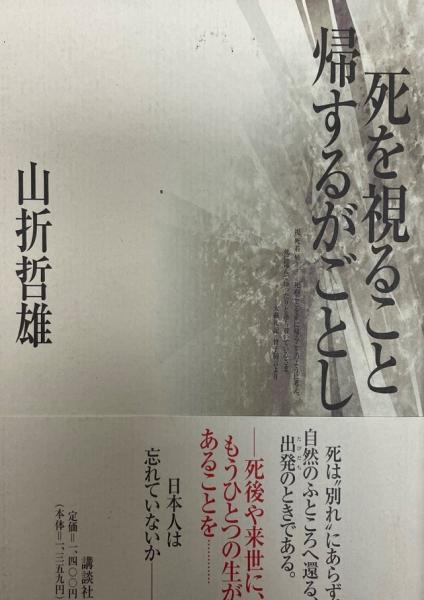 死を視ること
帰するがごとし
山折哲雄
死は〝別れ〟にあらず
自然のふところへ還る、
出発のときである。
たびだち
──死後や来世に、
もうひとつの生が
あることを………
日本人は
忘れていないか──
講談社
定価=一、四〇〇円
(本体=一、三五九円)